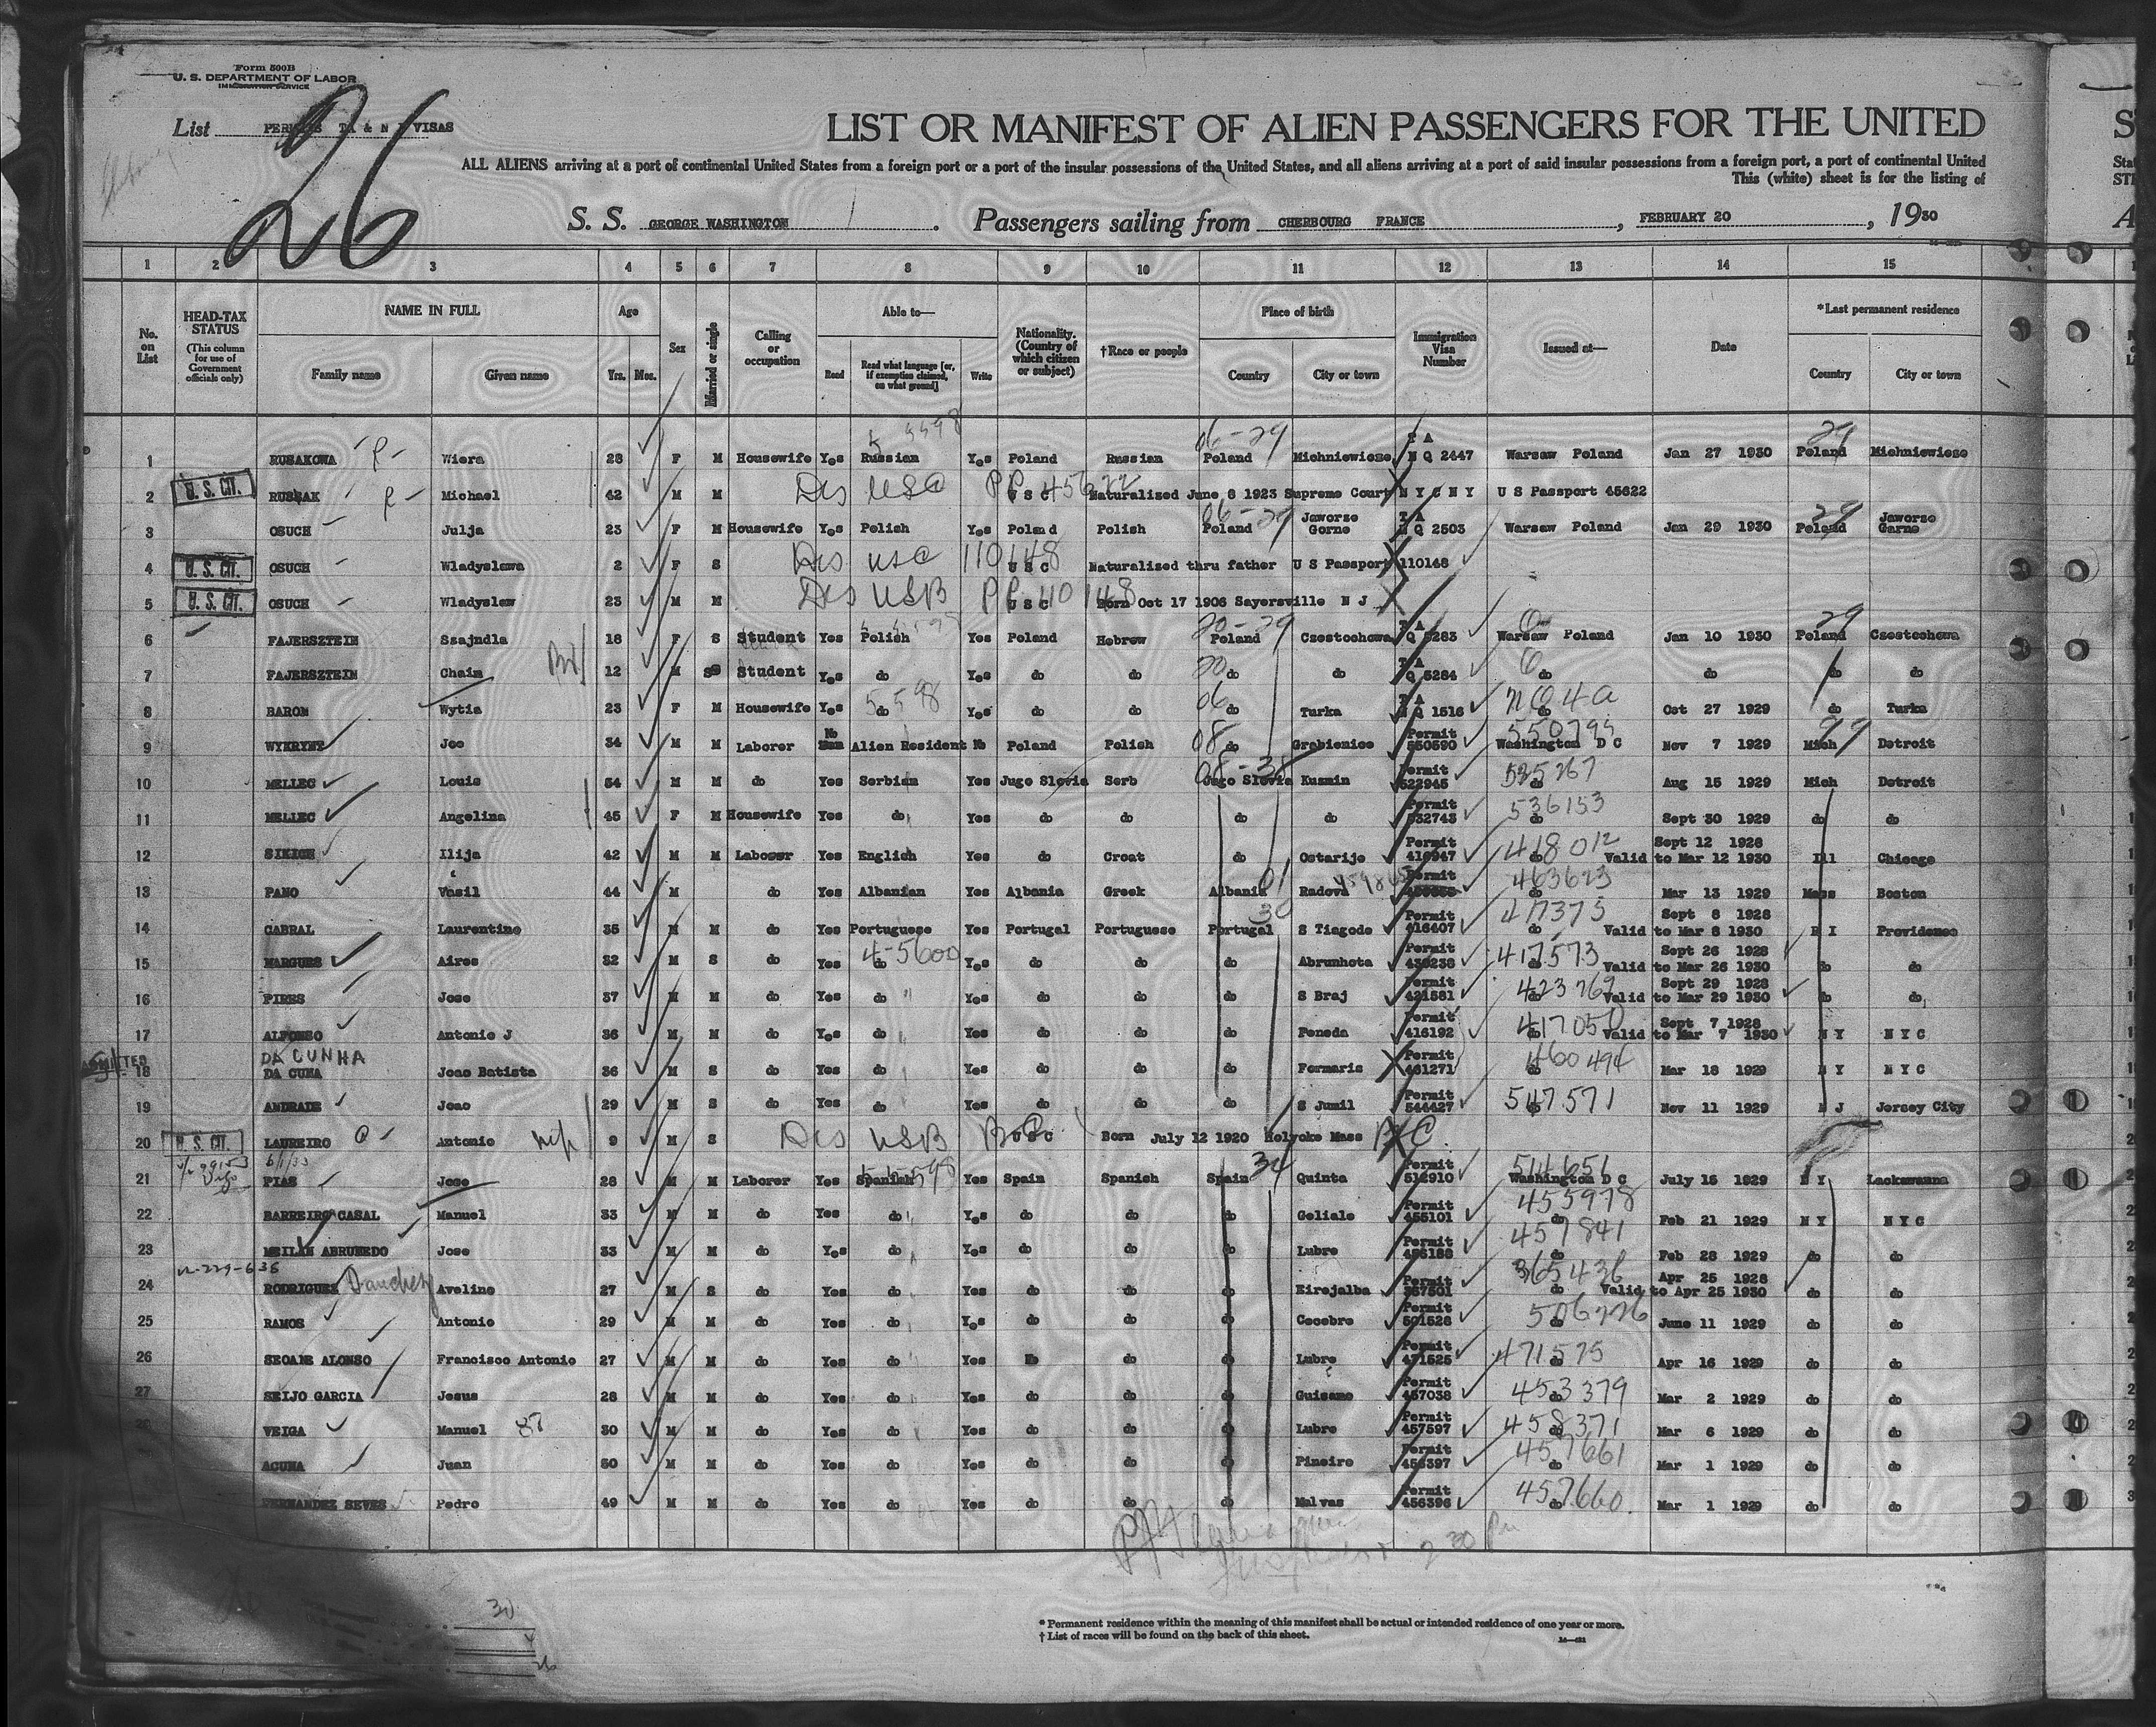 Form 500B
U. S. DEPARTMENT OF LABOR
IMMIGRATION SERVICE
26
List PERMITS TA & N VISAS
LIST OR MANIFEST OF ALIEN PASSENGERS FOR THE UNITED
ALL ALIENS arriving at a port of continental United States from a foreign port or a port of the insular possessions of the United States, and all aliens arriving at a port of said insular possessions from a foreign port, a port of continental United
This (white) sheet is for the listing of
S. S. GEORGE WASHINGTON . Passengers sailing from CHERBOURG FRANCE , FEBRUARY 20 , 1930
1 2 3 4 5 6 7 8 9 10 11 12 13 14 15
No. on List
HEAD-TAX STATUS (This column for use of Government officials only)
NAME IN FULL Family name Given name
Age Yrs. Mos.
Sex
Married or single
Calling or occupation
Able to— Read Read what language [or, if exemption claimed, on what ground] Write
Nationality. (Country of which citizen or subject)
†Race or people
Place of birth Country City or town
Immigration Visa Number
Issued at—
Date
*Last permanent residence Country City or town
5598 06-29 29
1 RUSAKOWA Wiera 28 F M Housewife Yes Russian Yes Poland Russian Poland Michniewicze T A N Q 2447 Warsaw Poland Jan 27 1930 Poland Michniewicze
2 U. S. CIT. RUSSAK Michael 42 M M Des USC PP 45622 U S C Naturalized June 8 1923 Supreme Court N Y C N Y U S Passport 45622
3 OSUCH Julja 23 F M Housewife Yes Polish Yes Poland Polish Poland 06-29 Jaworze Gorne T A N Q 2503 Warsaw Poland Jan 29 1930 Poland 29 Jaworze Garne
4 U. S. CIT. OSUCH Wladyslawa 2 F S Des USC 110148 U S C Naturalized thru father U S Passport 110148
5 U. S. CIT. OSUCH Wladyslaw 23 M M Des USB PP 110148 U S C Born Oct 17 1906 Sayersville N J
6 FAJERSZTEIN Szajndla 18 F S Student Yes Polish Yes Poland Hebrew Poland 20-29 Czestochowa T A Q 5283 Warsaw Poland Jan 10 1930 Poland 29 Czestochowa
7 FAJERSZTEIN Chaim 12 M S Student Yes do Yes do do 20 do do T A Q 5284 do do do do
8 BARON Wytia 23 F M Housewife Yes do 5598 Yes do do 06 do Turka T A N Q 1516 do Oct 27 1929 do Turka
9 WYKRYNY Joe 34 M M Laborer No Alien Resident No Poland Polish 08 do Grabienice Permit 550590 550795 Washington D C Nov 7 1929 Mich 29 Detroit
10 MELLEC Louis 54 M M do Yes Serbian Yes Jugo Slovia Serb Jugo Slovia 08-38 Kuzmin Permit 522945 535267 do Aug 15 1929 Mich Detroit
11 MELLEC Angelina 45 F M Housewife Yes do Yes do do do do Permit 532743 536153 do Sept 30 1929 do do
12 SIKICH Ilija 42 M M Laborer Yes English Yes do Croat do Ostarije Permit 416947 418012 do Sept 12 1928 Valid to Mar 12 1930 Ill Chicago
13 PANO Vasil 44 M do Yes Albanian Yes Albania Greek Albania 01 Radova Permit 463623 do Mar 13 1929 Mass Boston
14 CABRAL Laurentino 35 M M do Yes Portuguese Yes Portugal Portuguese Portugal 30 S Tiagode Permit 416407 417375 do Sept 8 1928 Valid to Mar 8 1930 R I Providence
15 MARGUES Aires 32 M S do Yes do 4-5600 Yes do do do Abrunhota Permit 430238 417573 Sept 26 1928 Valid to Mar 26 1930 do do
16 PIRES Jose 37 M M do Yes do Yes do do do S Braj Permit 421581 423769 do Sept 29 1928 Valid to Mar 29 1930 do do
17 ALFONSO Antonio J 36 M M do Yes do Yes do do do Peneda Permit 416192 417050 do Sept 7 1928 Valid to Mar 7 1930 N Y N Y C
ADMITTED DA CUNHA
18 DA CUNA Joao Batista 36 M S do Yes do Yes do do do Formaris Permit 461271 460494 do Mar 18 1929 N Y N Y C
19 ANDRADE Joao 29 M S do Yes do Yes do do do S Jumil Permit 544427 547571 do Nov 11 1929 N J Jersey City
20 U. S. CIT. LAUREIRO Antonio 9 M S Des USB U S C Born July 12 1920 Holyoke Mass
21 PIAS Jose 28 M M Laborer Yes Spanish 5598 Yes Spain Spanish Spain 34 Quinta Permit 512910 514651 Washington D C July 16 1929 N Y Lackawanna
22 BARREIRO CASAL Manuel 33 M M do Yes do Yes do do do Goliale Permit 455101 455978 do Feb 21 1929 N Y N Y C
23 MEILAN ABRUNEDO Jose 33 M M do Yes do Yes do do do Lubre Permit 456188 457841 do Feb 28 1929 do do
24 RODRIGUEZ Sanchez Avelino 27 M S do Yes do Yes do do do Eirejalba Permit 367501 365436 do Apr 25 1928 Valid to Apr 25 1930 do do
25 RAMOS Antonio 29 M M do Yes do Yes do do do Cecebre Permit 501528 506226 June 11 1929 do do
26 SEOANE ALONSO Francisco Antonio 27 M M do Yes do Yes do do do Lubre Permit 471525 471575 do Apr 16 1929 do do
27 SEIJO GARCIA Jesus 28 M M do Yes do Yes do do do Guisamo Permit 457038 453379 do Mar 2 1929 do do
VEIGA Manuel 30 M M do Yes do Yes do do do Lubre Permit 457597 458371 do Mar 6 1929 do do
ACUNA Juan 50 M M do Yes do Yes do do do Pineiro Permit 456397 457661 do Mar 1 1929 do do
FERNANDEZ SEVES Pedro 49 M M do Yes do Yes do do do Malvas Permit 456396 457660 do Mar 1 1929 do do
30
* Permanent residence within the meaning of this manifest shall be actual or intended residence of one year or more.
† List of races will be found on the back of this sheet.